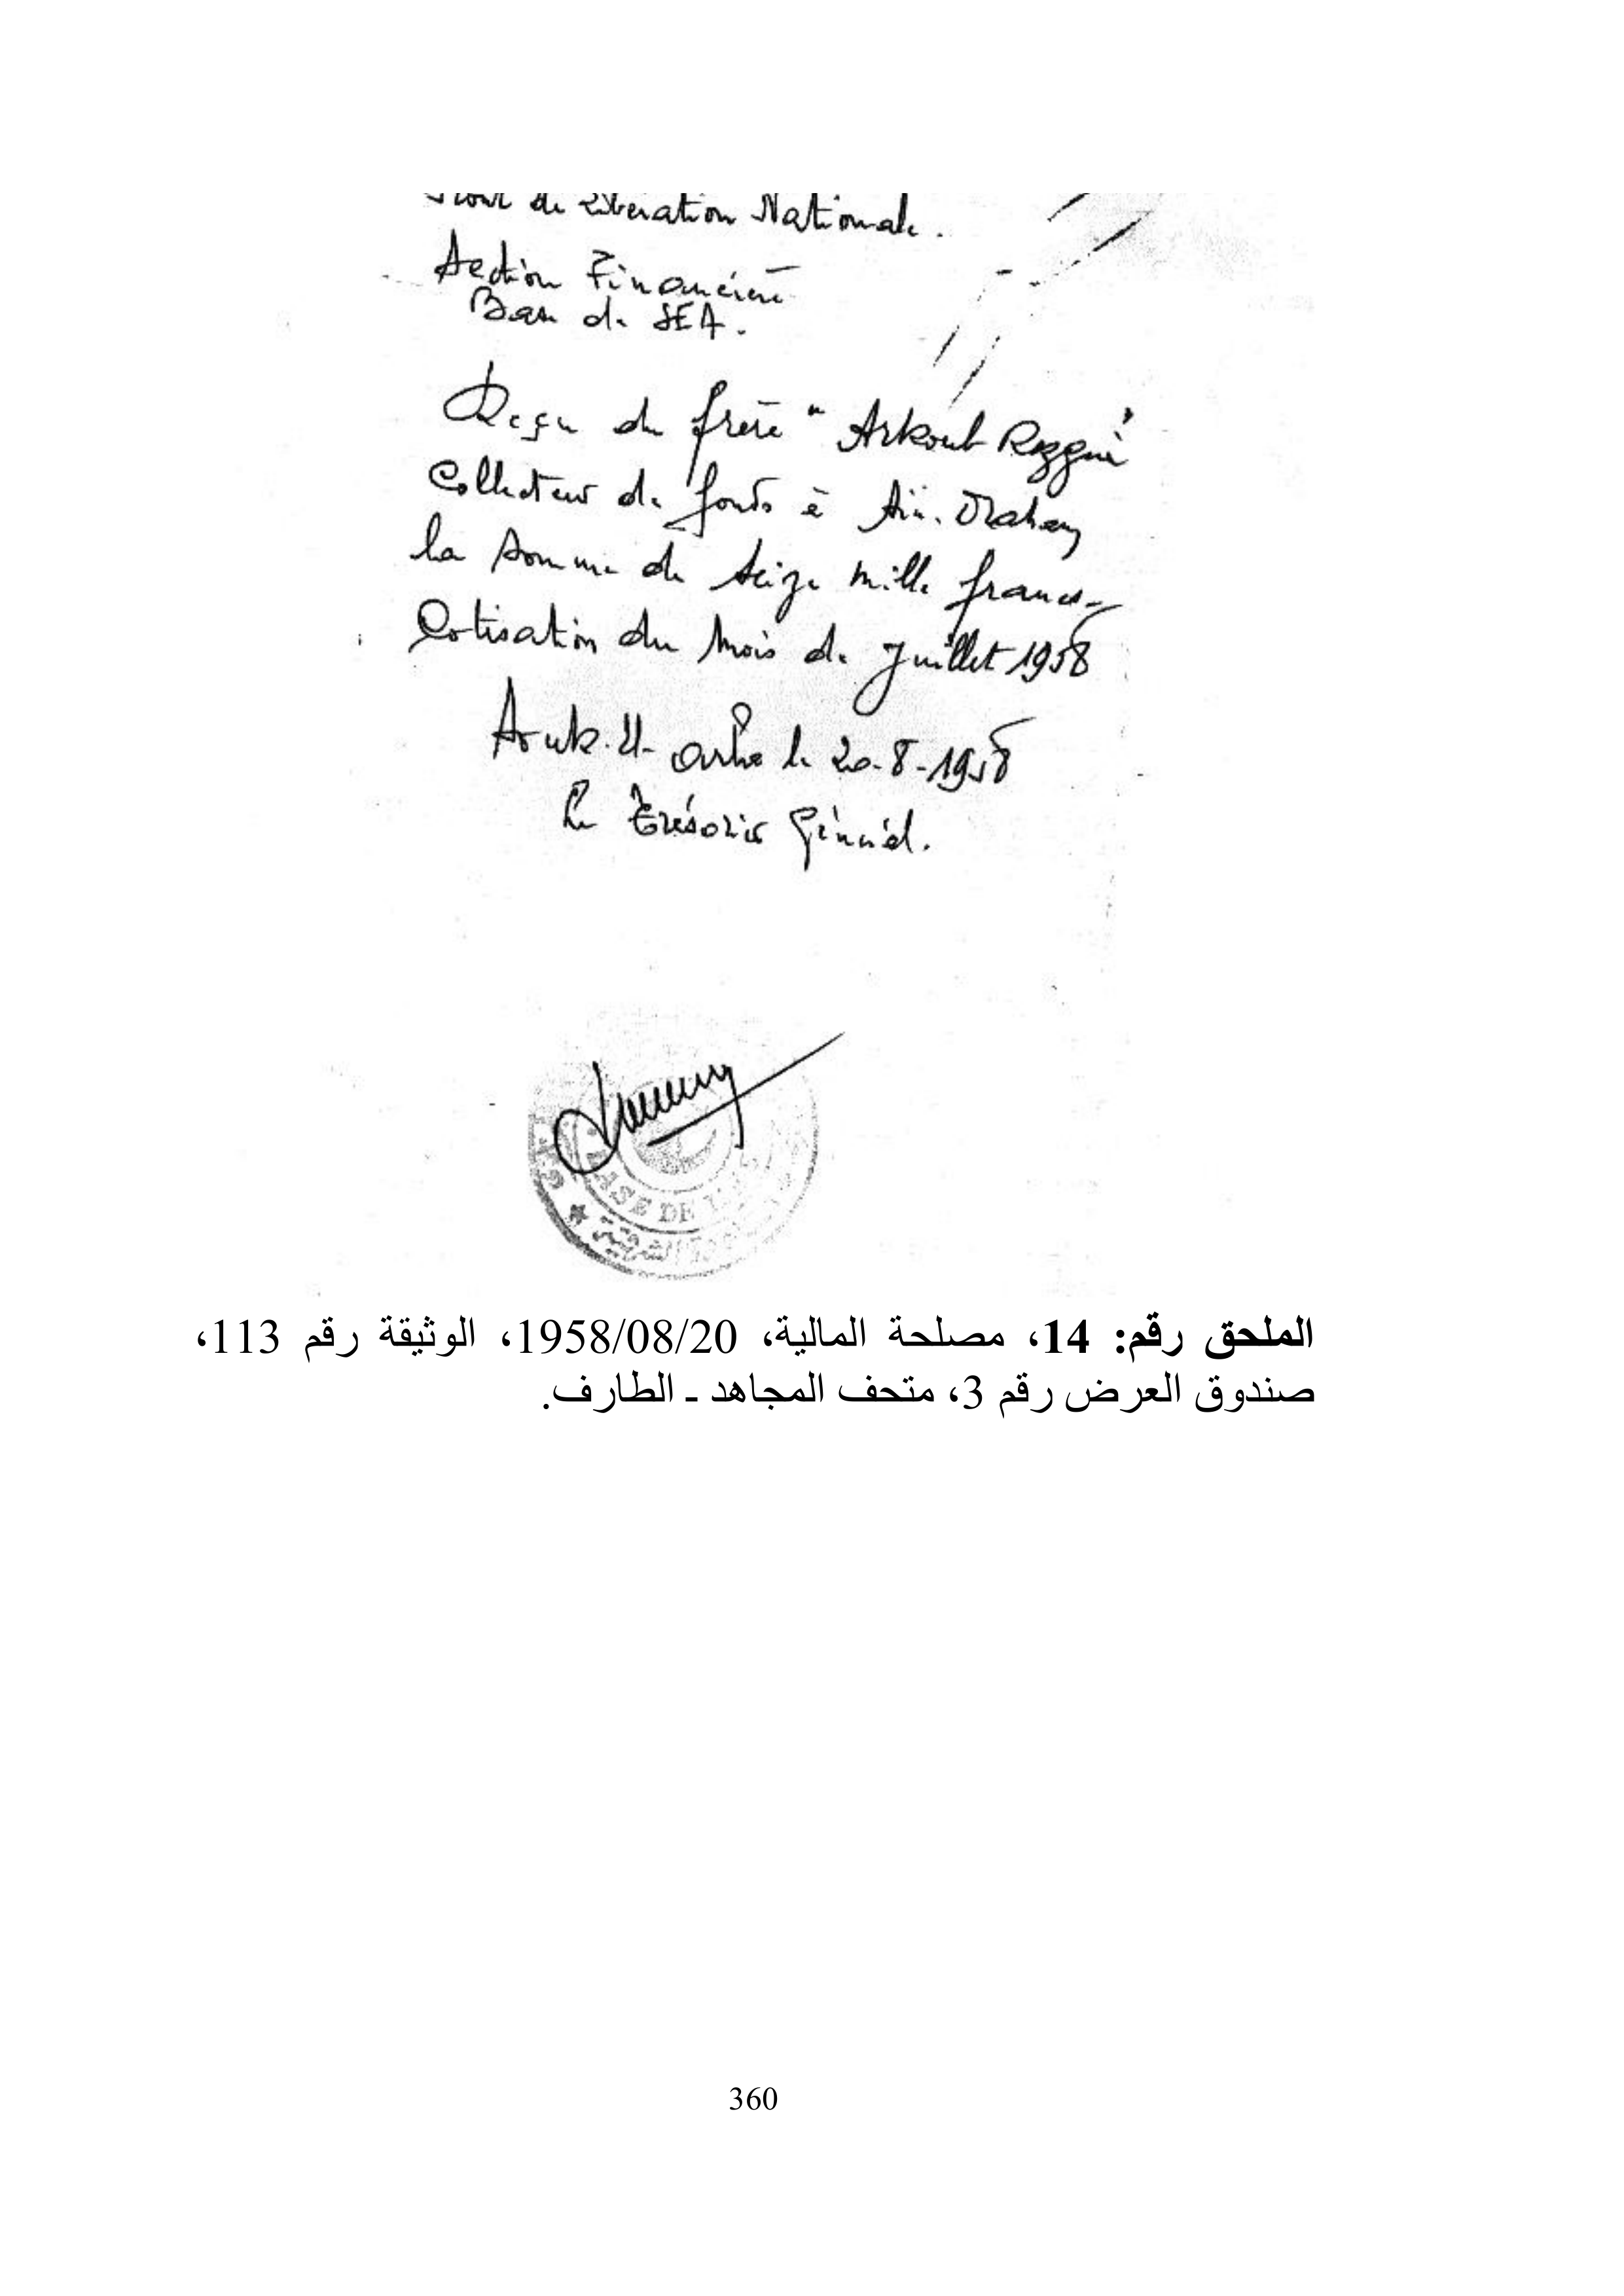 Front de Libération Nationale.
Section Financière
Base de SEA.
Reçu du frère "Arkoub Rezgui"
Collecteur de fonds à Aïn. Draham
la somme de seize mille francs
Cotisation du mois de juillet 1958
Souk. El- Arba le 20-8-1958
Le Trésorier Général.
BASE DE L'
الشرقية
الملحق رقم: 14، مصلحة المالية، 1958/08/20، الوثيقة رقم 113،
صندوق العرض رقم 3، متحف المجاهد ـ الطارف.
360